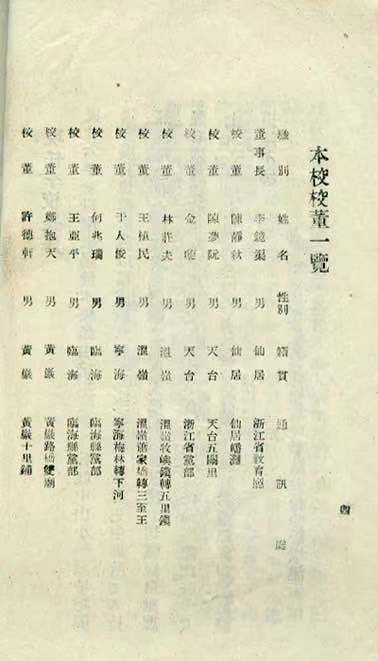 本校校董一覽
職別 姓名 性別 籍貫 通訊處
董事長 李鏡渠 男 仙居 浙江省教育廳
校董 陳靜秋 男 仙居 仙居皤灘
校董 陳夢阮 男 天台 天台五關里
校董 金 男 天台 浙江省黨部
校董 林 夫 男 溫嶺 溫嶺牧嶼鎮轉五里鎮
校董 王植民 男 溫嶺 溫嶺蕭家橋轉三至王
校董 干人俊 男 寧海 寧海梅林轉下河
校董 何兆瑞 男 臨海 臨海縣黨部
校董 王 平 男 臨海 臨海縣黨部
校董 鄭抱天 男 黃巖 黃巖路橋雙廟
校董 許德軒 男 黃巖 黃巖十里鋪